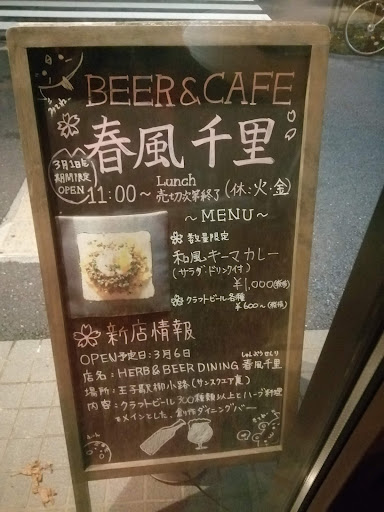 BEER & CAFE
春風千里
3月1日迄
期間限定
OPEN
11:00～ Lunch 売切次第終了 (休:火・金)
～MENU～
数量限定
和風キーマカレー
(サラダ・ドリンク付)
¥1,000(税込)
クラフトビール各種
¥600～(税込)
新店情報
OPEN予定日:3月6日
しゅんぷうせんり
店名:HERB&BEER DINING 春風千里
場所:王子駅柳小路(サンスクエア裏)
内容:クラフトビール300種類以上とハーブ料理
をメインとした、創作ダイニングバー